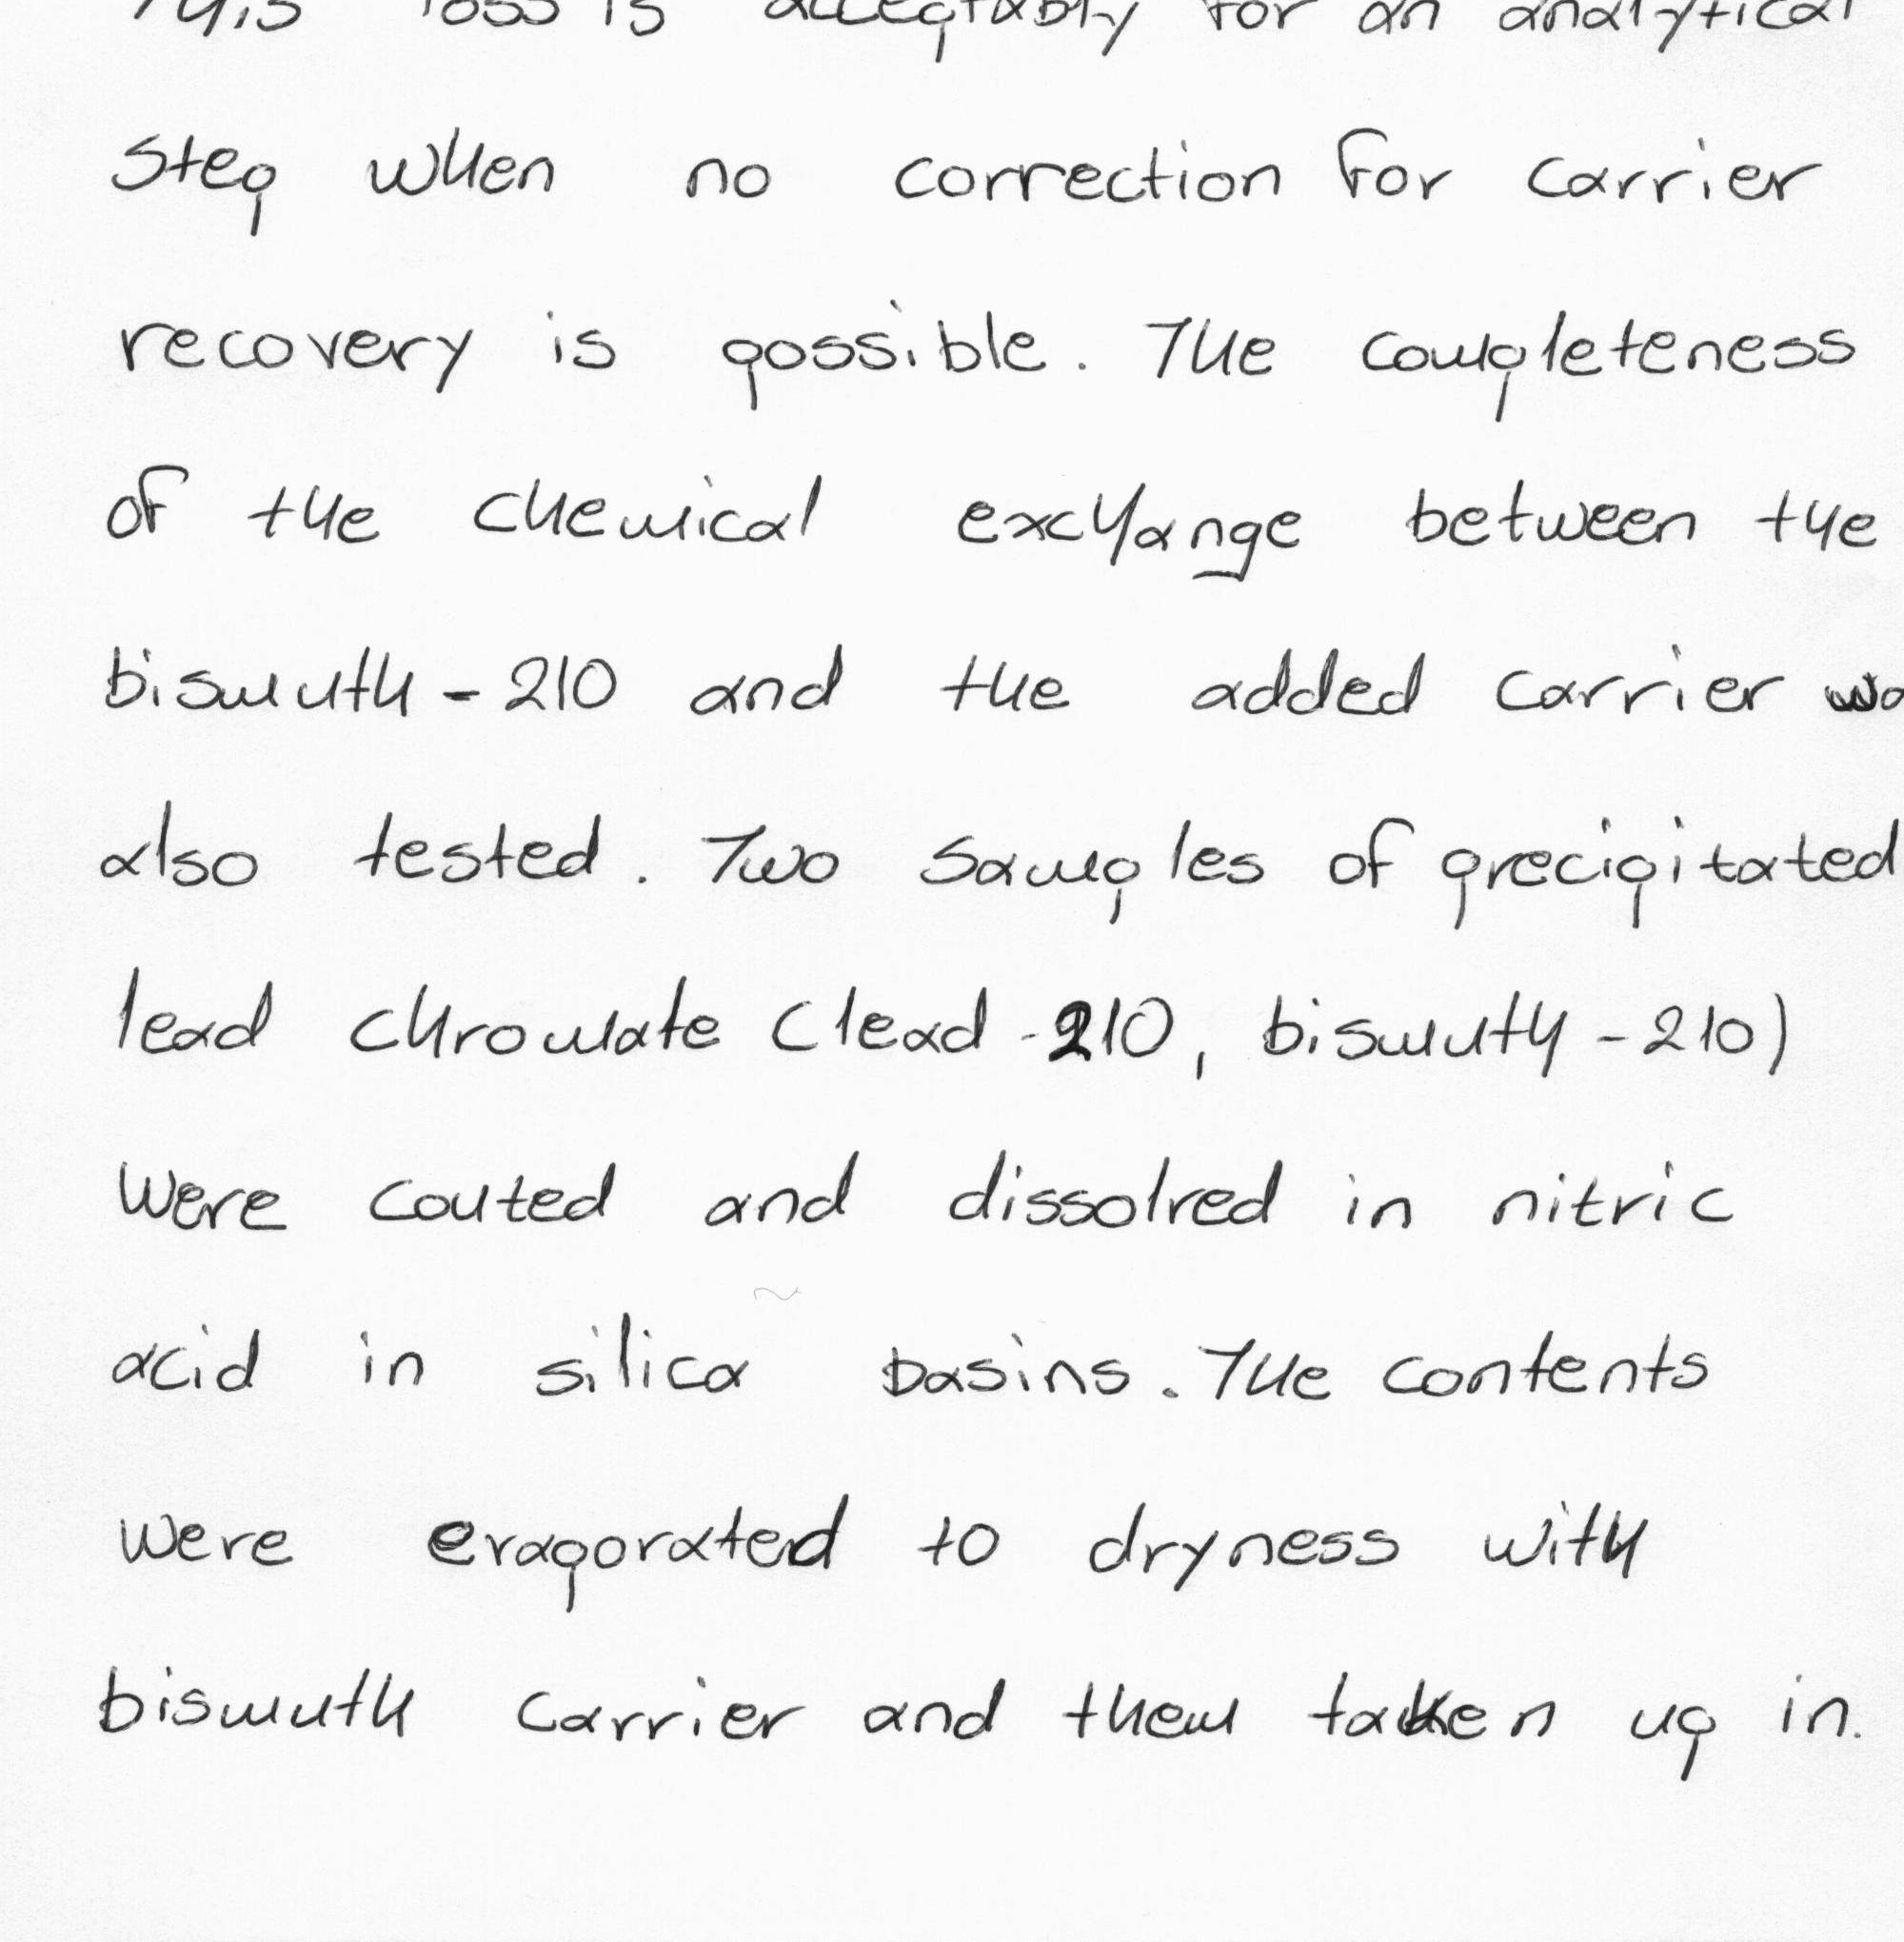 This loss is acceptably for an analytical
step when no correction for carrier
recovery is possible. The completeness
of the chemical exchange between the
bismuth-210 and the added carrier
also tested. Two samples of precipitated
lead chromate (lead-210, bismuth-210)
were couted and dissolved in nitric
acid in silica basins. The contents
were evaporated to dryness with
bismuth carrier and them taken up in.